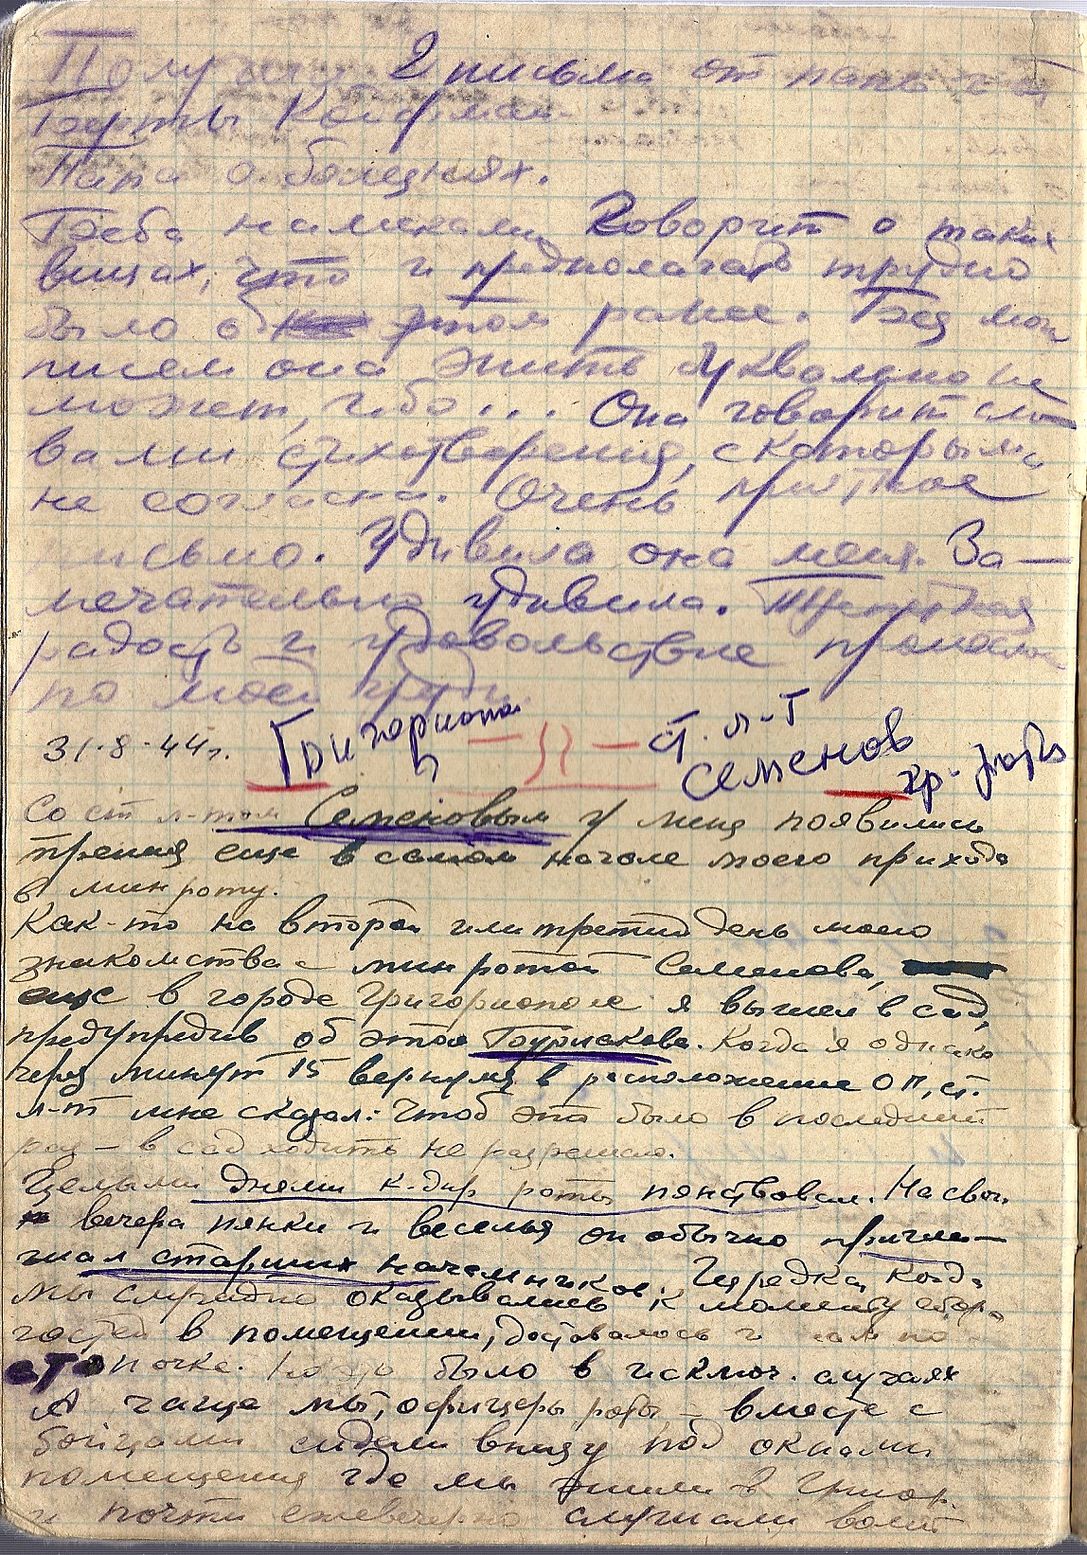 Получил 2 письма от папы и от
Берты Койфман.
Папа о болезнях.
Беба намеками говорит о таких
вещах, что и предполагать трудно
было об этом ранее. Без моих
писем она жить буквально не
может, ибо... Она говорит сло-
вами стихотворения, с которыми
не согласна. Очень приятное
письмо. Удивила она меня. За-
мечательно удивила.
радость и удовольствие пронеслись
по моей груди.
31.8.44г. Григориополь ст. л-т
Семенов
Со ст л-том Семеновым у меня появились
трения еще в самом начале моего прихода
в минроту.
Как-то на второй или третий день моего
знакомства с минротой Семенова,
еще в городе Григориополе я вышел в сад,
предупредив об этом Гоурискова. Когда я однако
через минут 15 вернулся в расположение ОП, ст.
л-т мне сказал: Чтоб это было в последний
раз – в сад ходить не разрешаю.
Целыми днями к-дир роты пянствовал. На свои
вечера пянки и веселья он обычно пригла-
шал старших начальников. Изредка, когда
мы случайно оказывались к моменту сбора
гостей в помещении, доставалось и нам по
стопочке. Но это было в исключ. случаях
А чаще мы, офицеры роты – вместе с
бойцами сидели внизу под окнами
помещения где мы жили в Григор.
и почти ежевечерно слушали